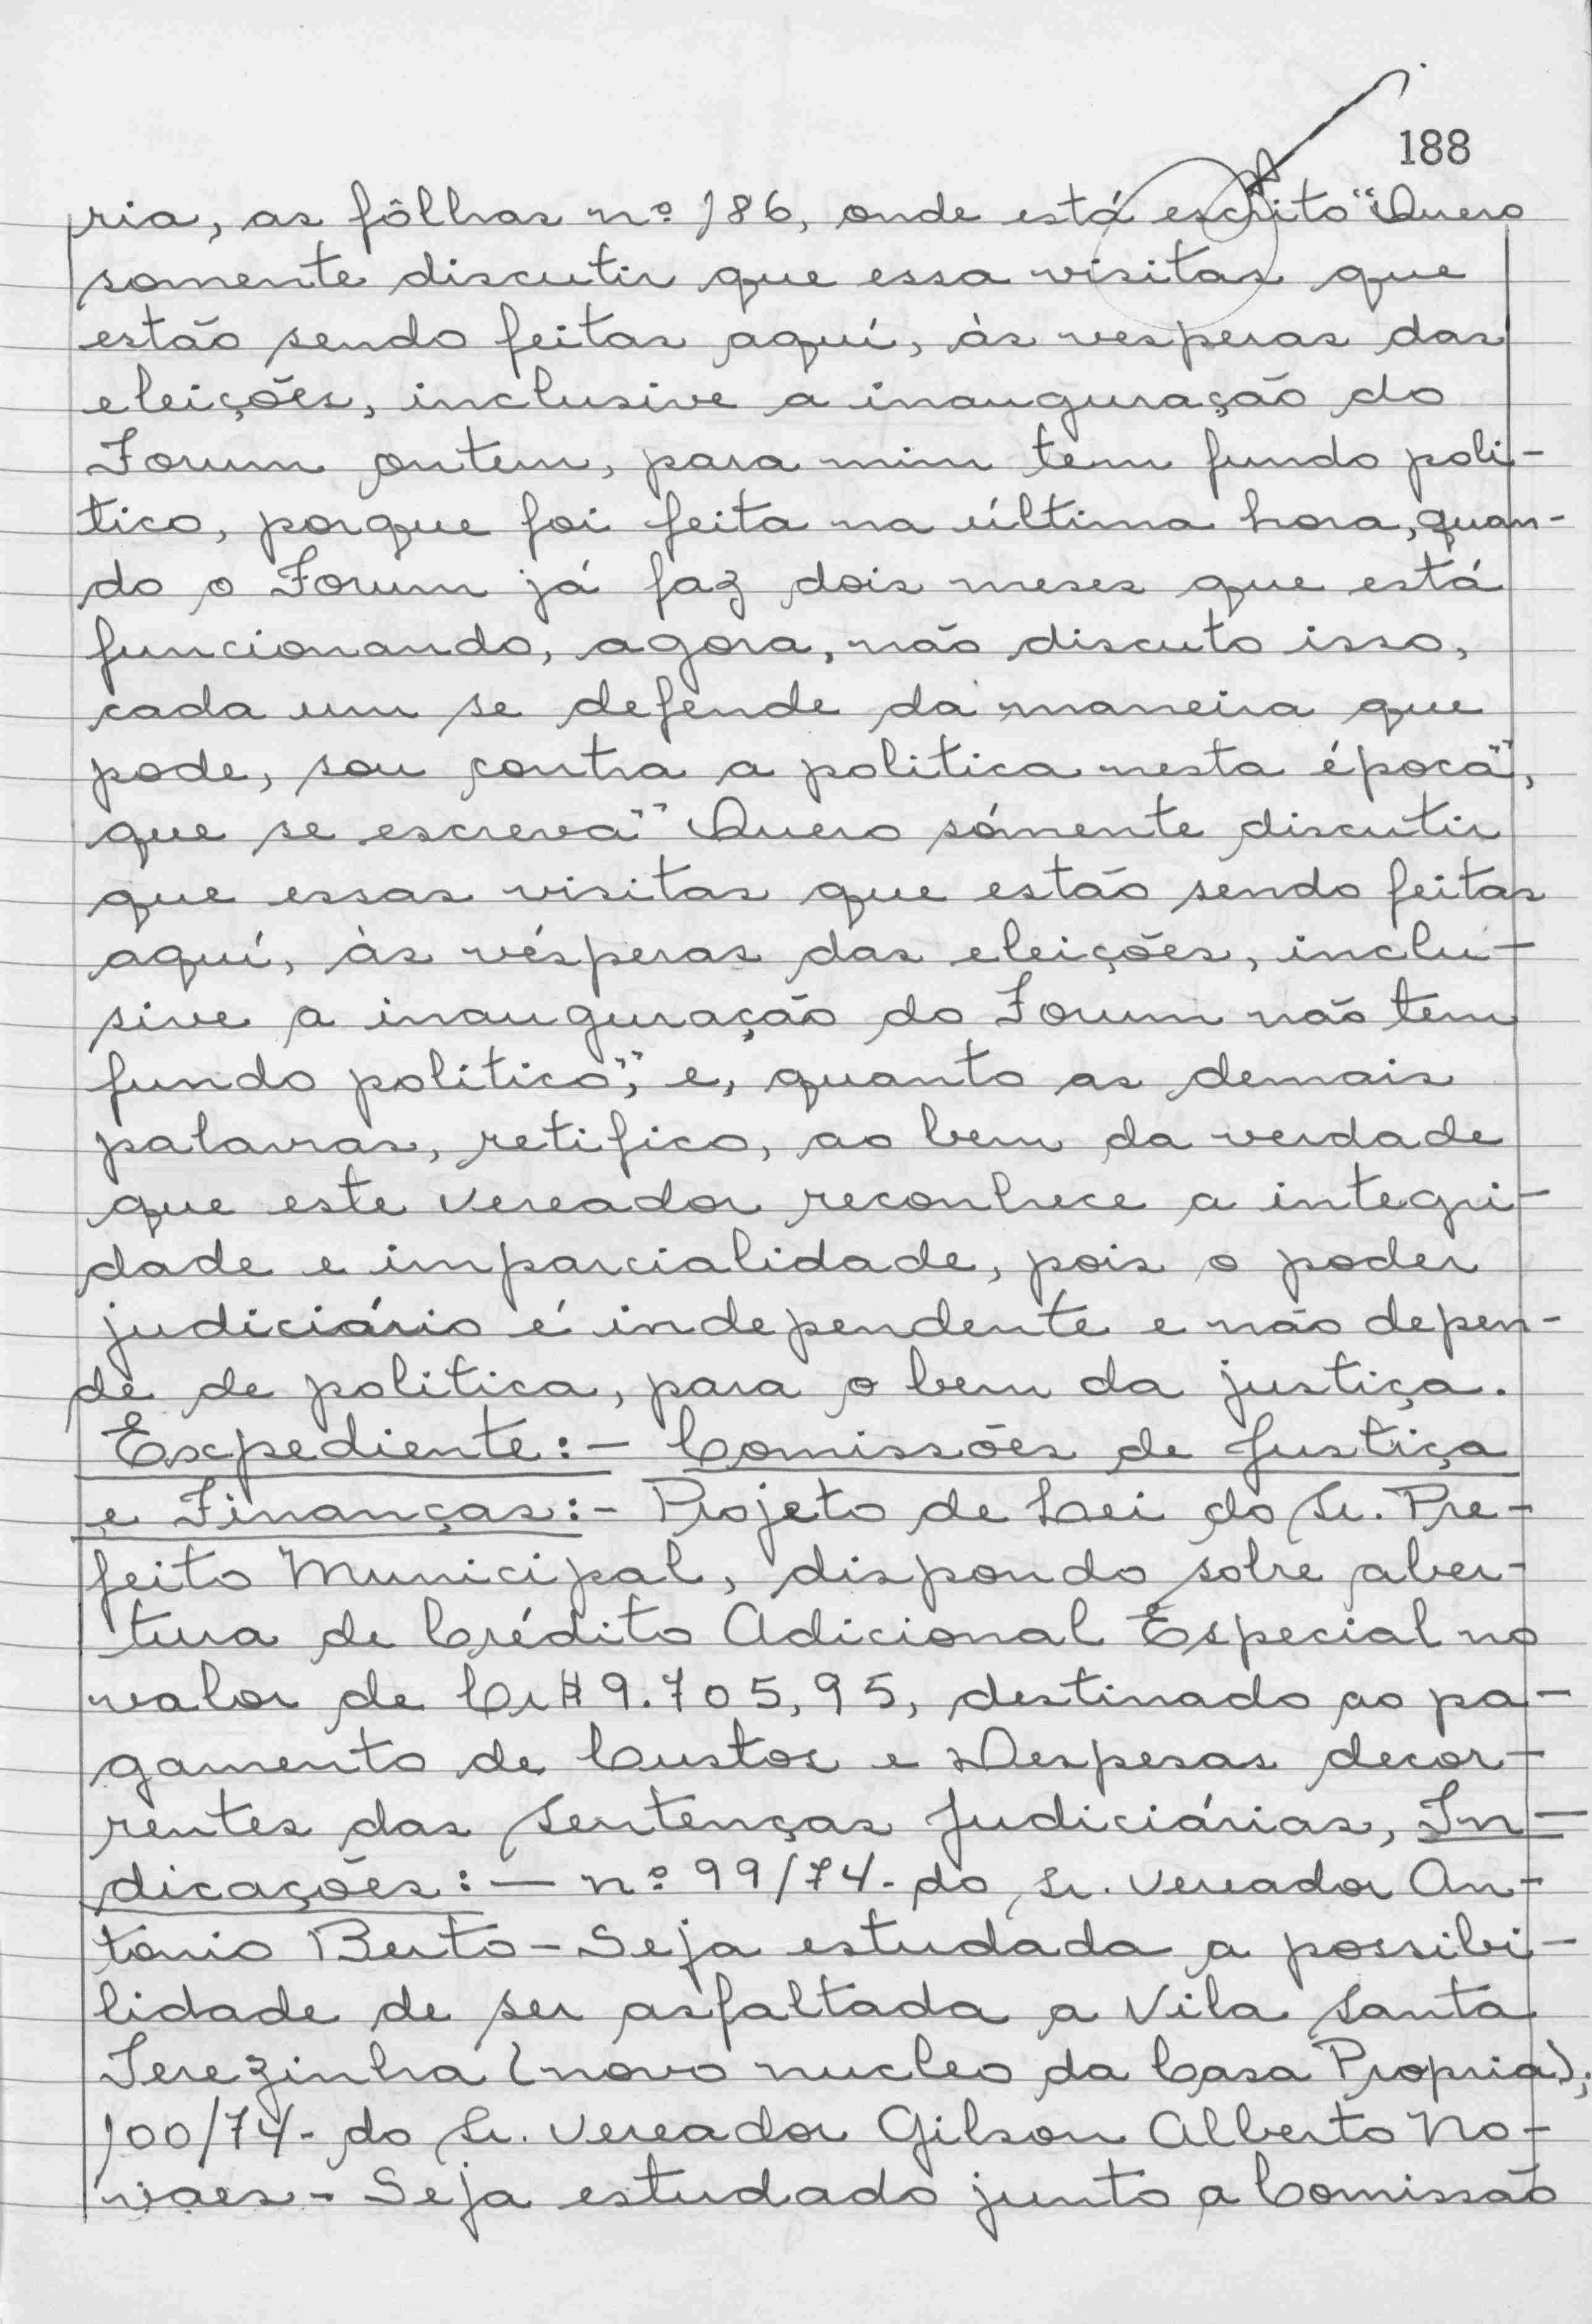 188
ria, as fôlhas nº 186, onde está escrito "Quero
somente discutir que essa visitas que
estão sendo feitas aquí, às vesperas das
eleições, inclusive a inauguração do
Forum ontem, para mim tem fundo poli-
tico, porque foi feita na última hora, quan-
do o Forum já faz dois meses que está
funcionando, agora, não discuto isso,
cada um se defende da maneira que
pode, sou contra a politica nesta época",
que se escreva" Quero sómente discutir
que essas visitas que estão sendo feitas
aquí, às vésperas das eleições, inclu-
sive a inauguração do Forum não tem
fundo politico", e, quanto as demais
palavras, retifico, ao bem da verdade
que este Vereador reconhece a integri-
dade e imparcialidade, pois o poder
judiciário é independente e não depen-
de de politica, para o bem da justiça.
Expediente:- Comissões de Justiça
e Finanças:- Projeto de Lei do Sr. Pre-
feito Municipal, dispondo sobre aber-
tura de Crédito Adicional Especial no
valor de Cr$ 9.705,95, destinado ao pa-
gamento de Custos e Despesas decor-
rentes das Sentenças Judiciárias, In-
dicações:- nº 99/74- do Sr. Vereador An-
tonio Berto - Seja estudada a possibi-
lidade de ser asfaltada a Vila Santa
Terezinha (novo nucleo da Casa Propria);
100/74- do Sr. Vereador Gilson Alberto No-
vaes - Seja estudado junto a Comissão